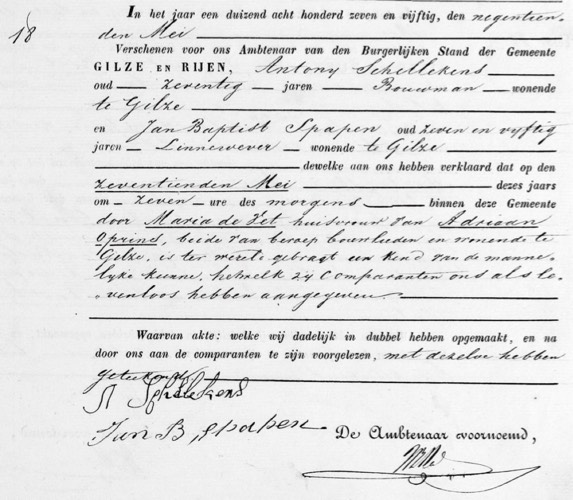 18
In het jaar een duizend acht honderd zeven en vijftig, den negentien-
den Mei
Verschenen voor ons Ambtenaar van den Burgerlijken Stand der Gemeente
GILZE EN RIJEN, Antony Schellekens
oud zeventig jaren Bouwman wonende
te Gilze
en Jan Baptist Spapen oud zeven en vyftig
jaren Linnewever wonende te Gilze
dewelke aan ons hebben verklaard dat op den
zeventienden Mei dezes jaars
om zeven ure des morgens binnen deze Gemeente
door Maria de Zet huisvrouw van Adriaan
Oprins, beide van beroep bouwlieden en wonende te
Gilze, is ter wereld gebragt een kind van de manne-
lyke kunne, hetwelk zy Comparanten ons als le-
venloos hebben aangegeven
Waarvan akte: welke wij dadelijk in dubbel hebben opgemaakt, en na
door ons aan de comparanten te zijn voorgelezen, met dezelve hebben
geteekend
A Schelekens
Jan B, Spapen
De Ambtenaar voornoemd,